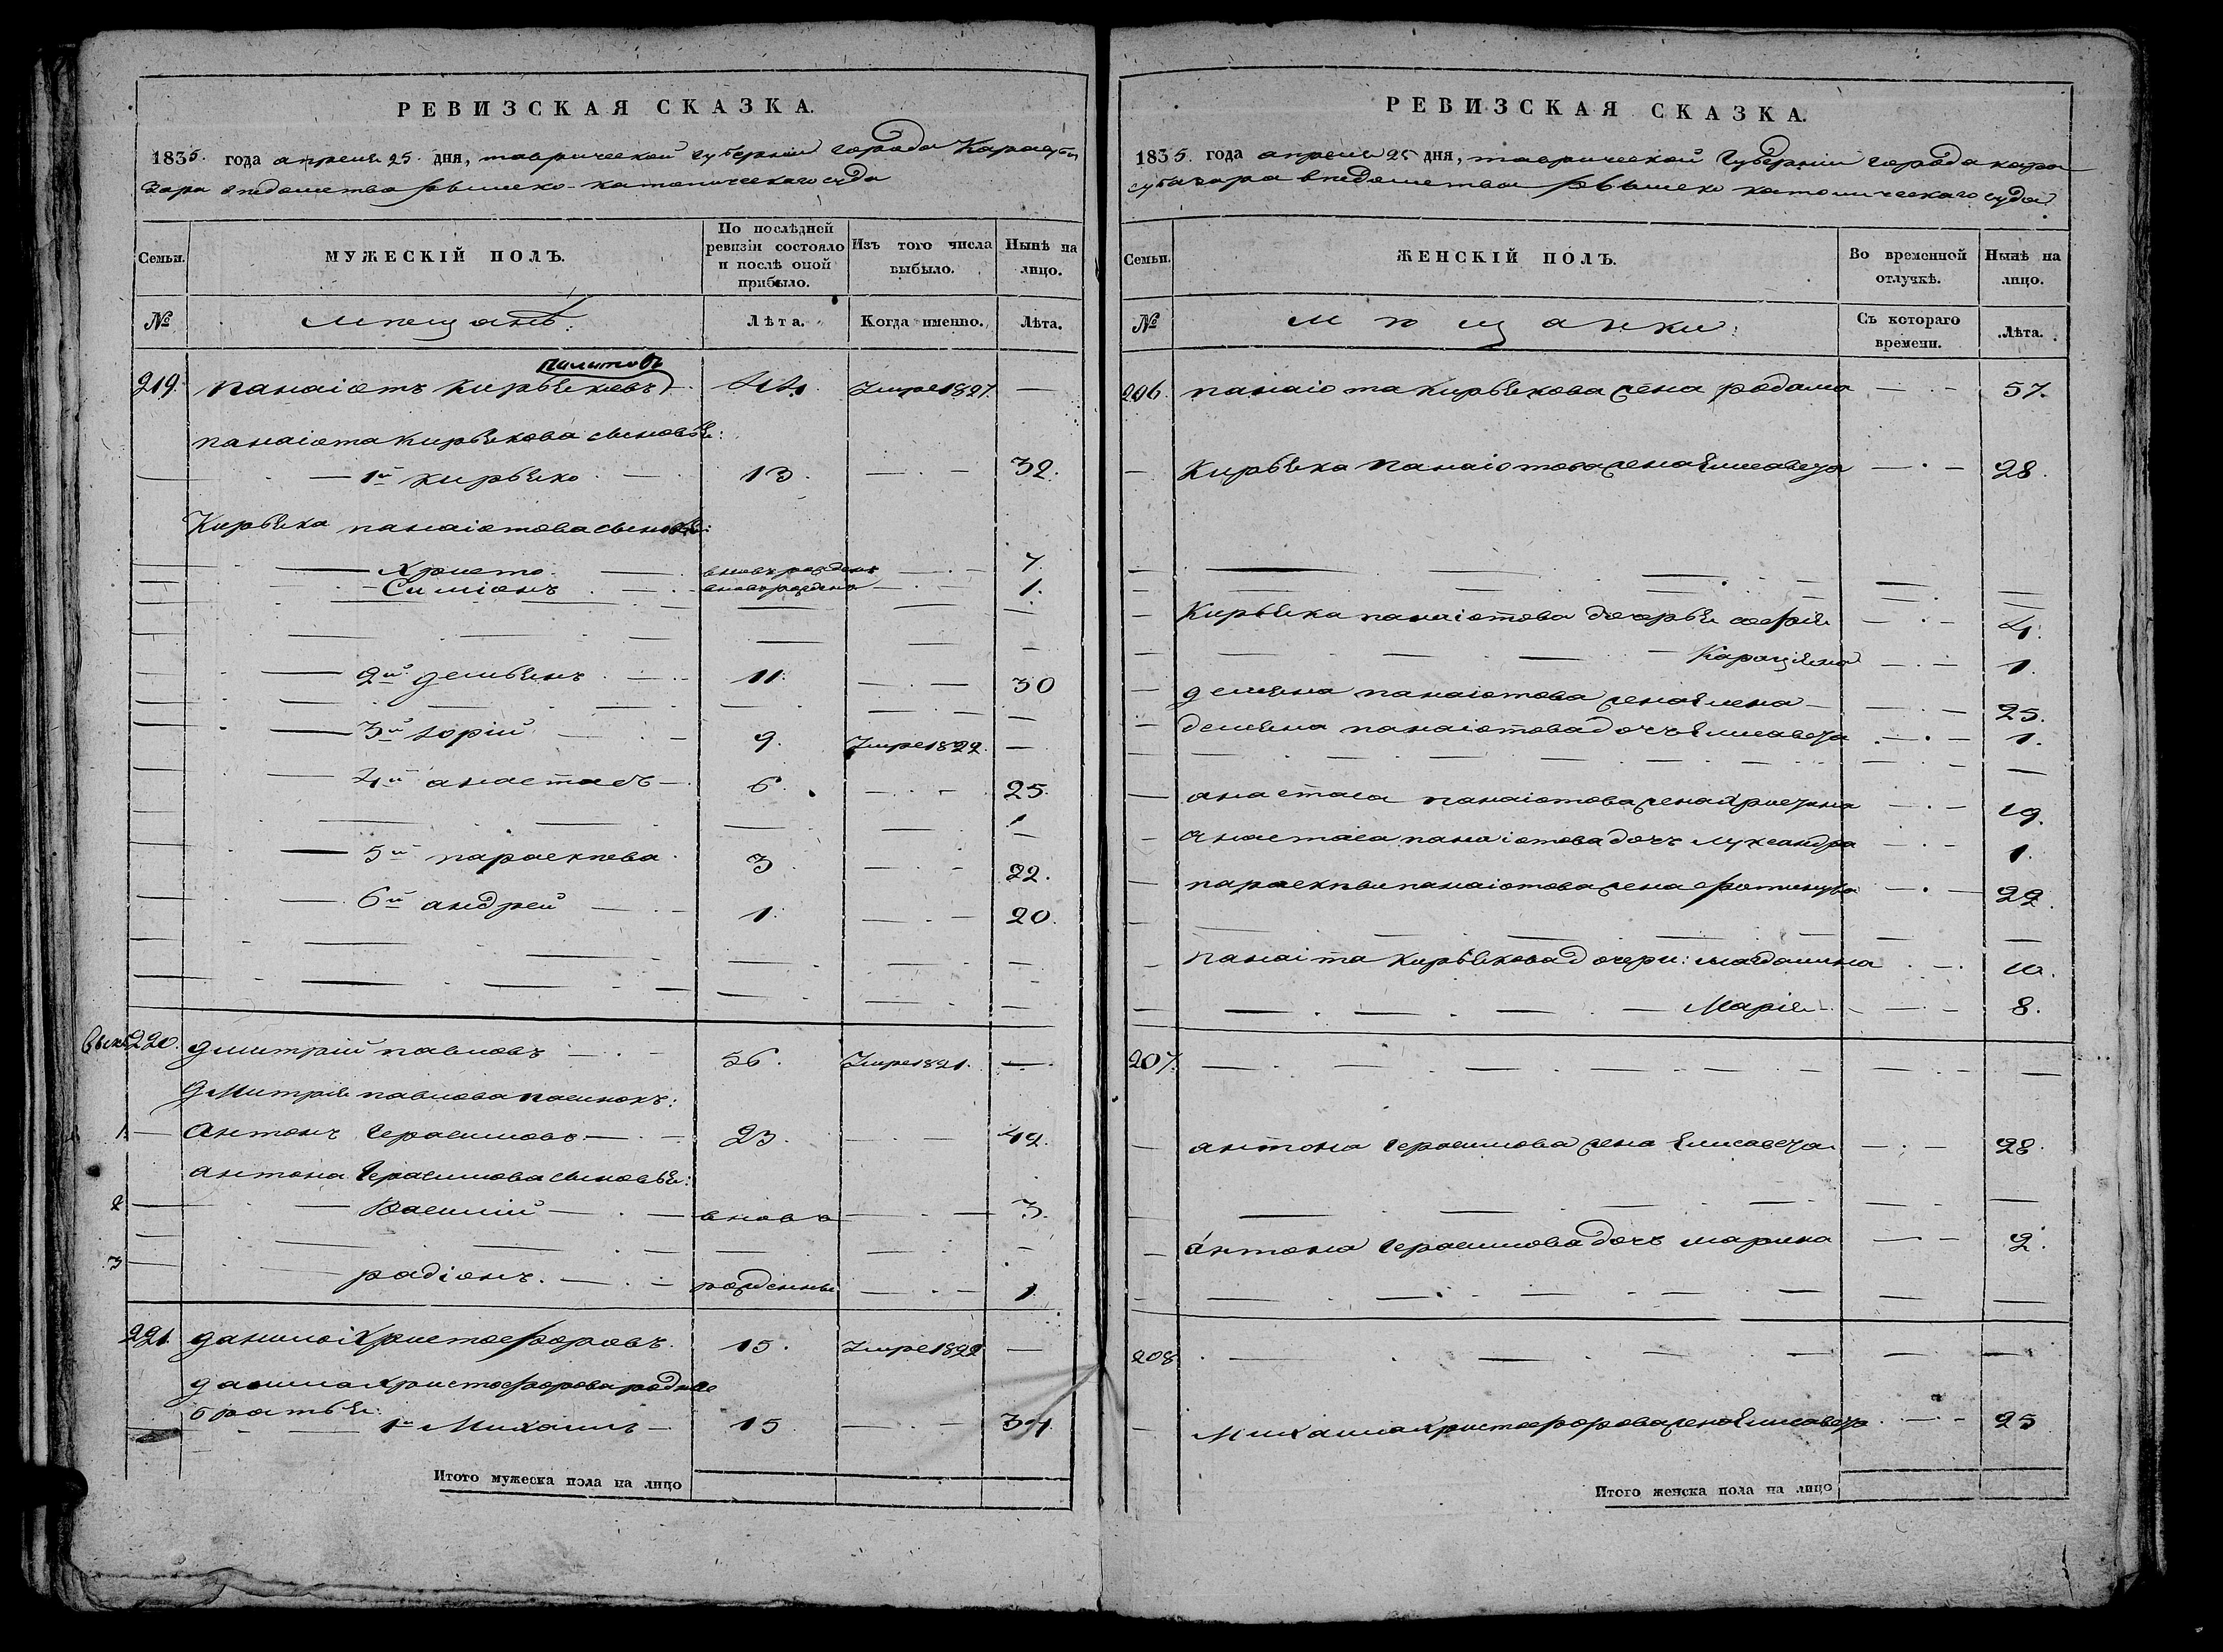 РЕВИЗСКАЯ СКАЗКА.
1835. года апреля 25. дня, таврической губерніи города Карасуб
зара вѣдомства рымско-католическаго суда
Семьи. МУЖЕСКІЙ ПОЛЪ. По послѣдней ревизіи состояло и послѣ оной прибыло. Изъ того числа выбыло. Нынѣ на лицо.
№ мѣщанъ: Лѣта. Когда именно. Лѣта.
219. Панаіотъ Кирьяковъ 44. Умре 1827. —
панаіота кирьякова сыновья:
— 1й кирьяко — 13. — 32.
Кирьяка панаіотова сыновья:
— Христо — вновь рожденъ — 7.
— Симіонъ — вновь рожденъ — 1.
— 2й демьянъ — 11. — 30
— 3й юрій — 9. Умре 1822. —
— 4й анастасъ — 6. — 25.
— 5й параскева 3 — 22.
— 6й андрей — 1. — 20.
220. дмитрій павловъ — 56. Умре 1821. —
Дмитрія павлова пасинокъ:
1. — Антонъ Герасимовъ — 23. — 42.
антона Герасимова сыновья:
2 — Василій — вновь — 3.
3 — радіонъ. — рожденны — 1
221. данило Христофоровъ. 15. Умре 1822 —
данила христофорова родные
братья:
— 1й Михаилъ — 15 — 34.
Итого мужеска пола на лицо
РЕВИЗСКАЯ СКАЗКА.
1835. года апреля 25 дня, таврической Губерніи города кара
субазара вѣдомства рымско католическаго суда
Семьи. ЖЕНСКІЙ ПОЛЪ. Во временной отлучкѣ. Нынѣ на лицо.
№ мѣщанки: Съ котораго времени. Лѣта.
206. панаіота Кирьякова жена — 57.
— Кирьяка Панаіотова жена Елисавета — 28.
— Кирьяка панаіотова дочерья софія — 4.
— — 1.
— демяна панаіотова жена Елена — 25.
— демяна панаіотова дочь Елисавета — 1.
— анастаса панаіотова жена Христина — 19.
— Анастаса панаіотова дочь луксандра — 1.
— параскевы панаіотова жена — 22.
— панаіта кирьякова дочери: магдалина — 10.
— Марія — 8.
207. —
— антона Герасимова жена Елисавета — 28.
— антона Герасимова дочь марина — 2.
208 —
— Михаила христофорова жена Елисавета — 25
Итого женска пола на лицо